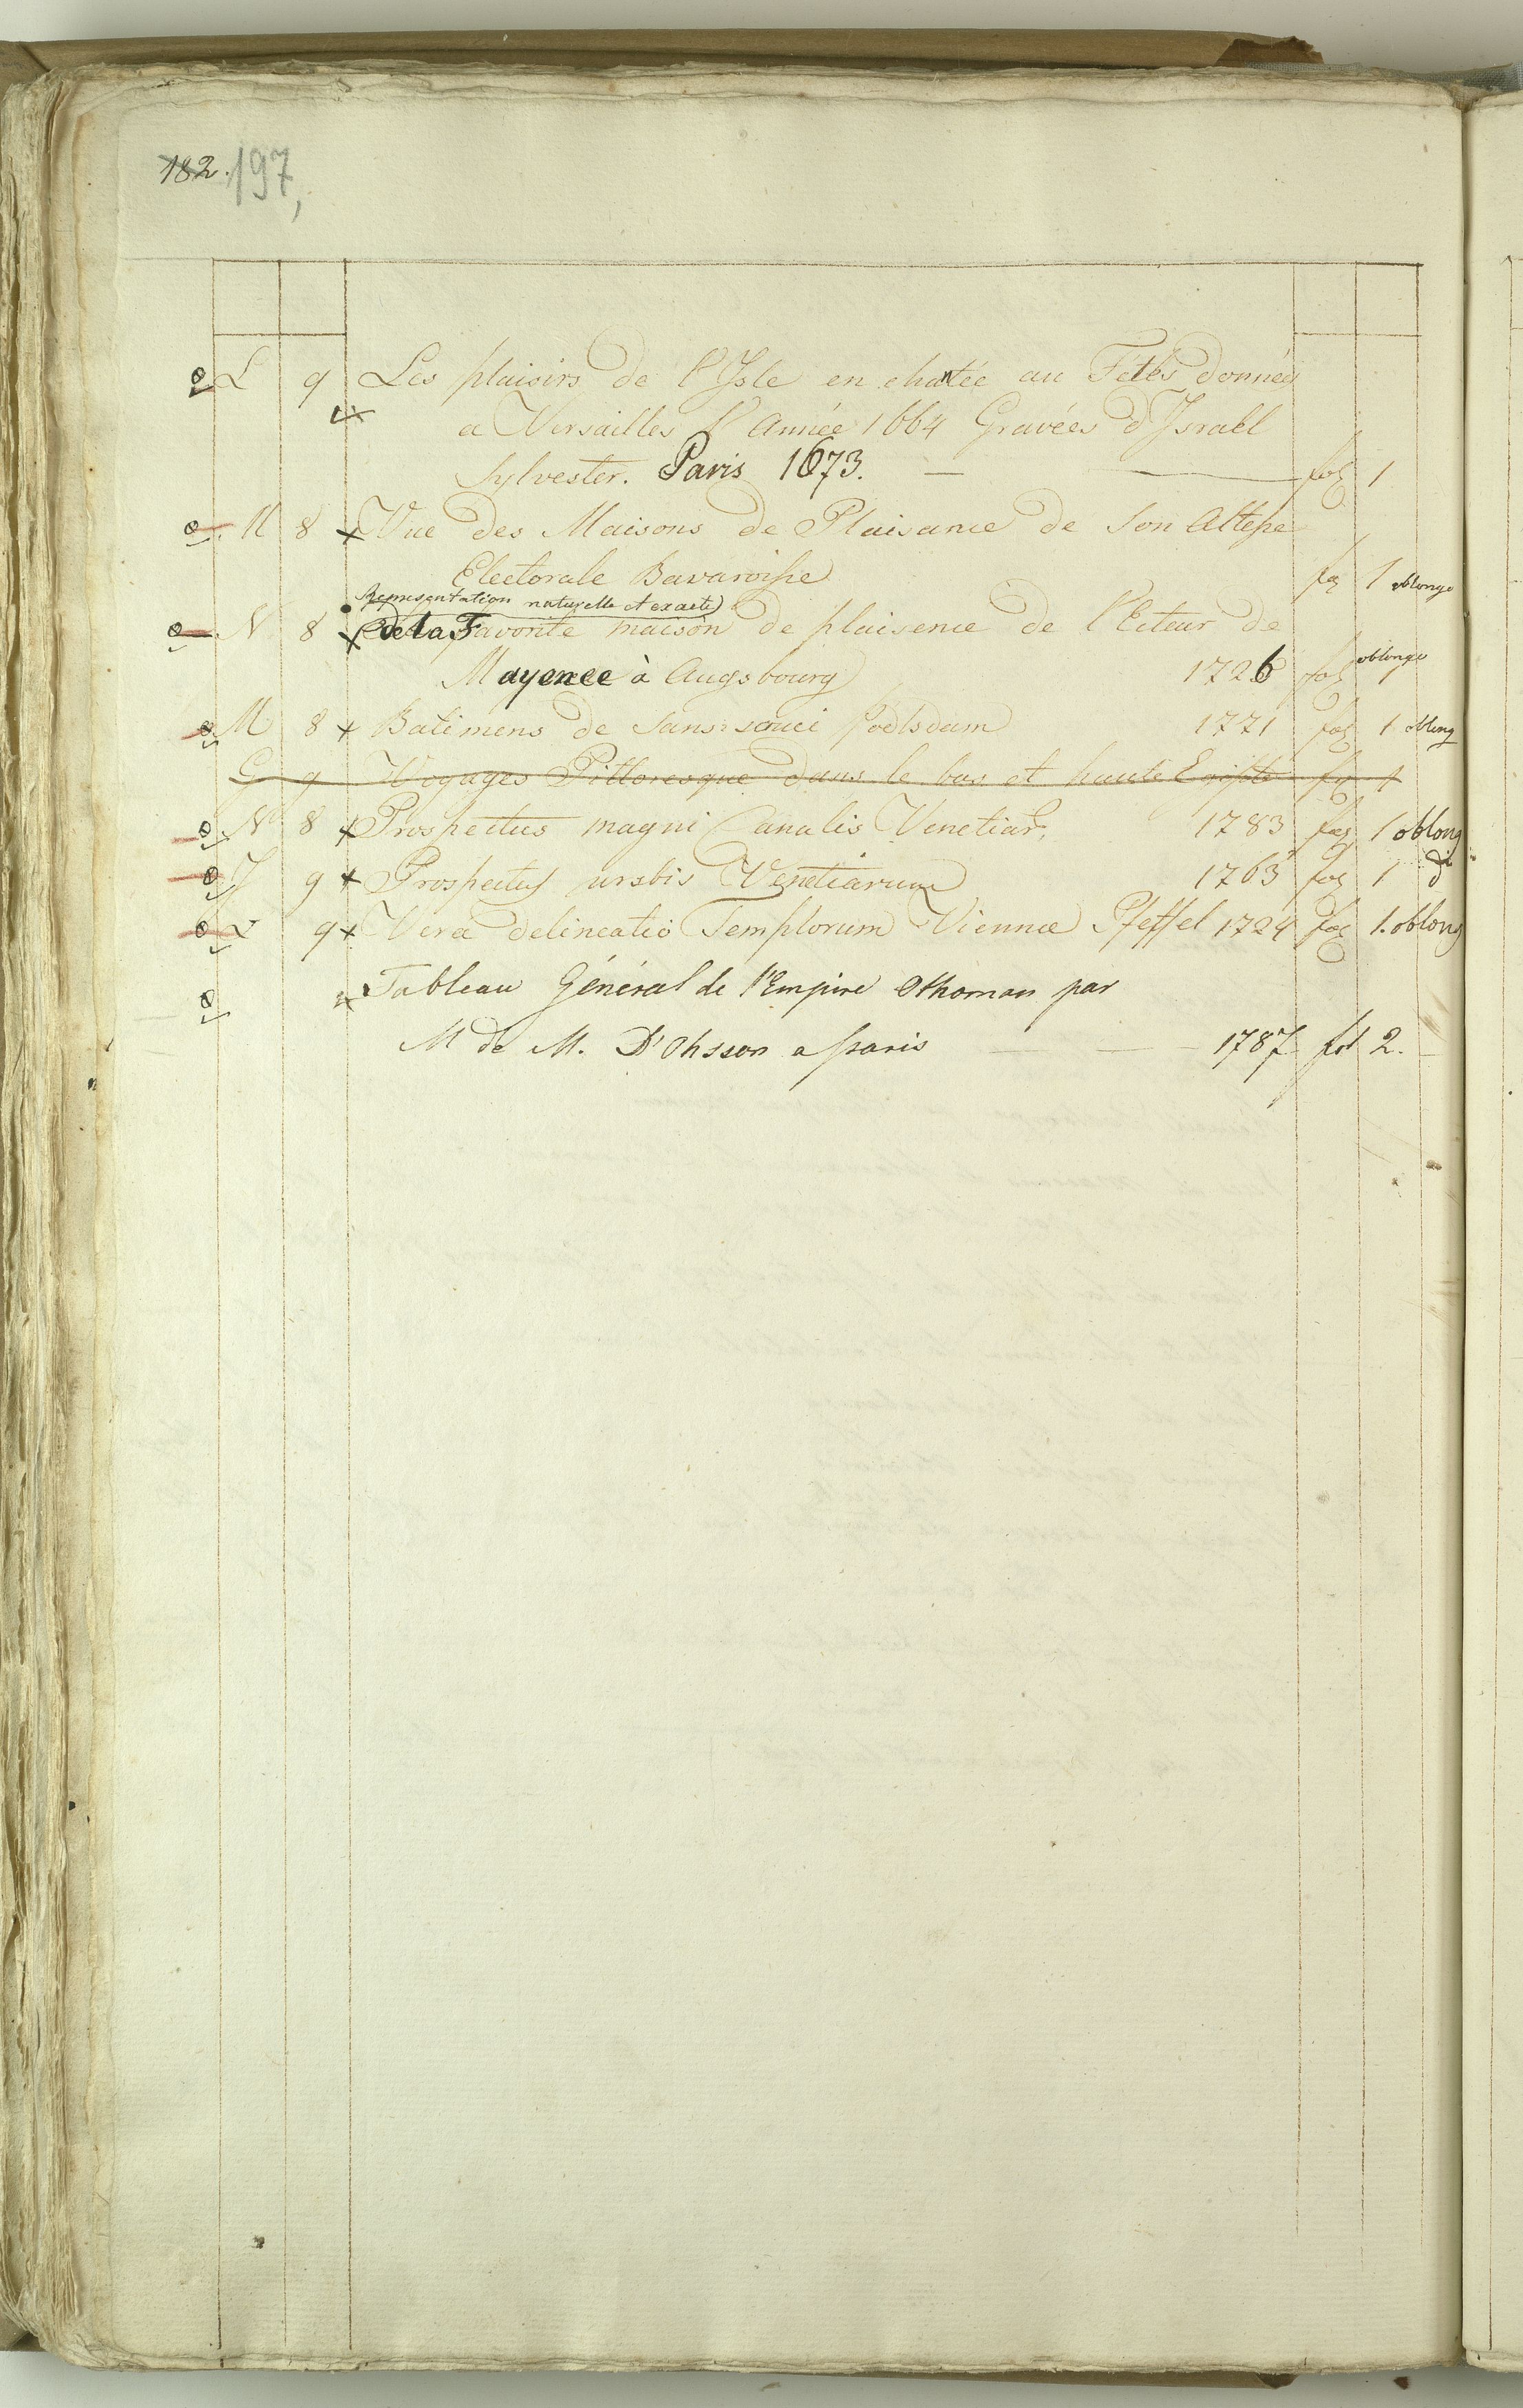 182. 197,
L 9 Les plaisirs de l'Isle en chantée au Fétes données
a Versailles l'Année 1664 Gravées d'Israël
Sylvester. Paris 1673. — fol 1
M 8 x Vue des Maisons de Plaisance de Son Altesse
Electorale Bavaroisse fol 1 oblongo
Representation naturelle et exacte
N 8 x de la Favorite maison de plaisence de l'Ecteur de
Mayence à Augsbourg 1726 fol 1 oblongo
M 8 x Batimens de Sans-souci Podtsdam 1771 fol 1 oblong
G 9 Voyages Pittoresque dans le bas et haute Egipte fol 1
N 8 x Prospectus magni Canalis Venetiar: 1783 fol 1 oblong
J 9 x Prospectus urabis Venetiarum 1763 fol 1 do
L 9 x Vera delineatio Templorum Viennæ Pfeffel 1724 fol 1. oblong
x Tableau Général de l'Empire Othoman par
M de M. D'Ohsson a paris — 1787 fol 2.